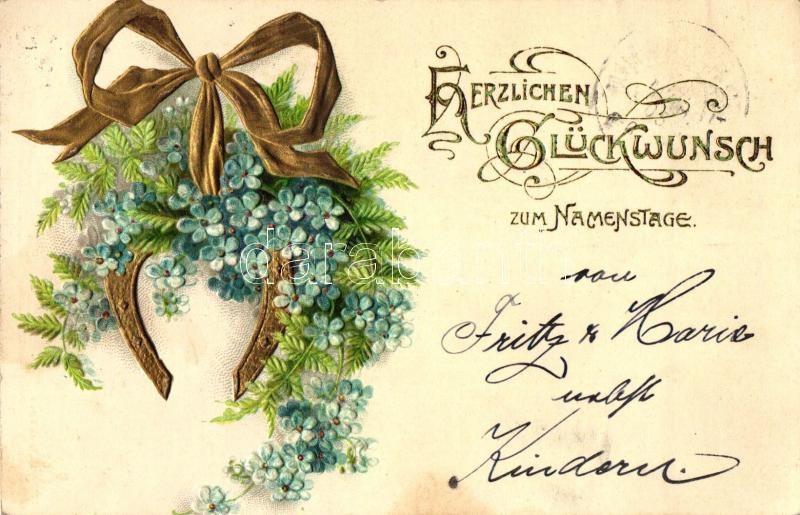 HERZLICHEN
GLÜCKWUNSCH
ZUM NAMENSTAGE.
darabanth
von
Fritz & Marie
nebst
Kindern.